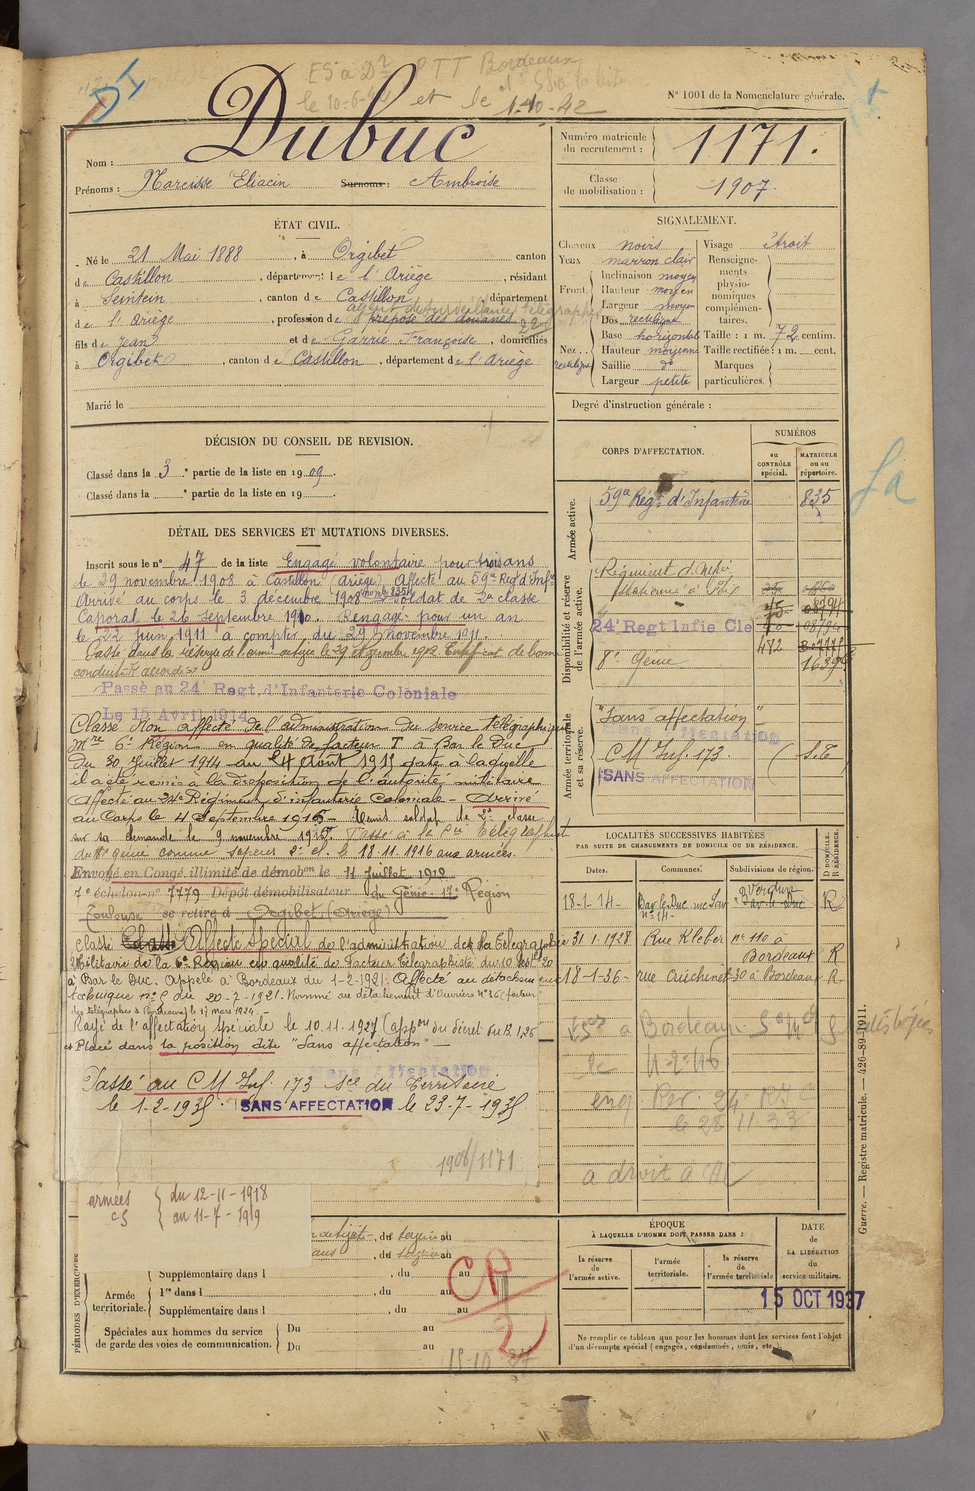 ES à Dr PTT Bordeaux
le 10-6-42 et le 1-10-42
N° 1001 de la Nomenclature générale.
Nom : Dubuc
Prénoms : Narcisse Eliacin Surnoms : Ambroise
Numéro matricule du recrutement : 1171.
Classe de mobilisation : 1907.
ÉTAT CIVIL.
Né le 21 Mai 1888, à Orgibet canton
de Castillon, département de l'Ariège, résidant
à Seintein, canton de Castillon, département
agent de surveillance télégraphes
de l'Ariège, profession de préposé des douanes
fils de Jean et de Garrie Françoise, domiciliés
à Orgibet, canton de Castillon, département de l'Ariège
Marié le
SIGNALEMENT.
Cheveux noirs
Yeux marron clair
Front. Inclinaison moyen
Hauteur moyen
Largeur moyen
Nez.. rectiligne
Dos rectiligne
Base horizontal
Hauteur moyenne
Saillie do
Largeur petite
Visage étroit
Renseignements physionomiques complémentaires.
Taille : 1 m. 72 centim.
Taille rectifiée : 1 m. cent.
Marques particulières.
Degré d'instruction générale :
DÉCISION DU CONSEIL DE REVISION.
Classé dans la 3e partie de la liste en 1909.
Classé dans la e partie de la liste en 19
DÉTAIL DES SERVICES ET MUTATIONS DIVERSES.
Inscrit sous le n° 47 de la liste Engagé volontaire pour trois ans
le 29 novembre 1908 à Castillon (Ariège) Affecté au 59e Reg d'Inf
Arrivé au corps le 3 décembre 1908 Soldat de 2e classe
Caporal le 26 septembre 1910. Rengagé pour un an
le 22 juin 1911 à compter du 29 novembre 1911.
Passé dans la réserve de l'armée active le 29 novembre 1912 Certificat de bonne
conduite accordé
Passé au 24 Regt. d'Infanterie Coloniale
Le 15 Avril 1914
Classé Non affecté de l'administration du service télégraphique
Mre 6e Région en qualité de facteur T à Bar le Duc
Du 30 Juillet 1914 au 4 Août 1915 date à laquelle
il a été remis à la disposition de l'autorité militaire
Affecté au 24e Régiment d'infanterie Coloniale - Arrivé
au Corps le 4 Septembre 1915 - Remis soldat de 2e classe
sur sa demande le 9 novembre 1915. Passé à la Cie Télégraphiste
du 8e génie comme sapeur 2e cl. le 18.11.1916 aux armées.
Envoyé en Congé illimité de démobon le 11 Juillet 1919
7e échelon n° 7779 Dépôt démobilisateur du Génie 17e Région
Toulouse se retire à Orgibet (Ariège)
Classé Affecté Spécial de l'administration de la Télégraphie
Militaire de la 6e Région en qualité de Facteur Télégraphiste du 10 Sept 20
à Bar le Duc. Appelé à Bordeaux du 1-2-1921. Affecté au détachement
technique n° 8 du 20-7-1921. Nommé au détachement d'Ouvriers n° 36 (facteur
des télégraphes à Bordeaux) le 17 mars 1924.
Rayé de l'affectation Spéciale le 10.11.1927 (appon du décret du 13.1.25
et Placé dans la position dite "Sans affectation"
Sans Affectation
Passé au CM Inf. 173 Sce du Territoire
le 1-2-1935. SANS AFFECTATION le 23-7-1935
1908/1171
armées du 12-11-1918
CS au 11-7-1919
CORPS D'AFFECTATION.
NUMÉROS
au CONTRÔLE spécial.
MATRICULE ou au répertoire.
Armée active.
59e Régt d'Infanterie 835
Disponibilité et réserve de l'armée active.
Régiment d'Infie
stationné à Foix
24e Regt Infie Cle
8e Génie 1639
Armée territoriale et sa réserve.
"Sans affectation"
Sans Affectation
CM Inf. 173 (S.T
SANS AFFECTATION
LOCALITÉS SUCCESSIVES HABITÉES
PAR SUITE DE CHANGEMENTS DE DOMICILE OU DE RÉSIDENCE.
Dates. Communes. Subdivisions de région. D DOMICILE. R RÉSIDENCE.
18-1-14- Bar le Duc n° 14- Verdun Bar-le-Duc R
31.1.1928 Rue Kleber n° 110 à Bordeaux R
18-1-36- rue Cruchinet 30 à Bordeaux R
à Bordeaux
le 4-2-46
28 11 33
a droit à
ÉPOQUE
À LAQUELLE L'HOMME DOIT PASSER DANS :
la réserve de l'armée active.
l'armée territoriale.
la réserve de l'armée territoriale
DATE de LA LIBÉRATION du service militaire.
15 OCT 1937
Ne remplir ce tableau que pour les hommes dont les services font l'objet
d'un décompte spécial (engagés, condamnés, omis, etc.).
PÉRIODES D'EXERCICE
Supplémentaire dans l , du au
Armée territoriale. 1re dans l , du au
Supplémentaire dans l , du au
Spéciales aux hommes du service de garde des voies de communication. Du au
Du au
CP
2
15-10-37
Guerre. — Registre matricule. — 426-89-1911.